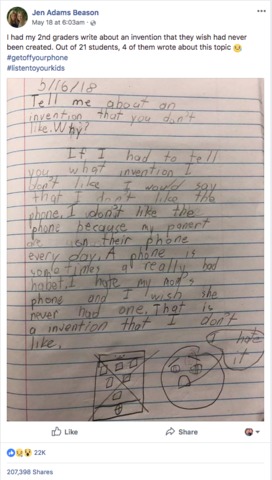 Jen Adams Beason
May 18 at 6:03am
I had my 2nd graders write about an invention that they wish had never
been created. Out of 21 students, 4 of them wrote about this topic 😥
#getoffyourphone
#listentoyourkids
5/16/18
Tell me about an
invention that you don't
like. Why?
If I had to tell
you what invention I
don't like I would say
that I don't like the
phone. I don't like the
phone because my panert
are on their phone
every day. A phone is
sometimes a really bad
habet. I hate my mom's
phone and I wish she
never had one. That is
a invention that I don't
like.
I hate it
Like
Share
22K
207,398 Shares